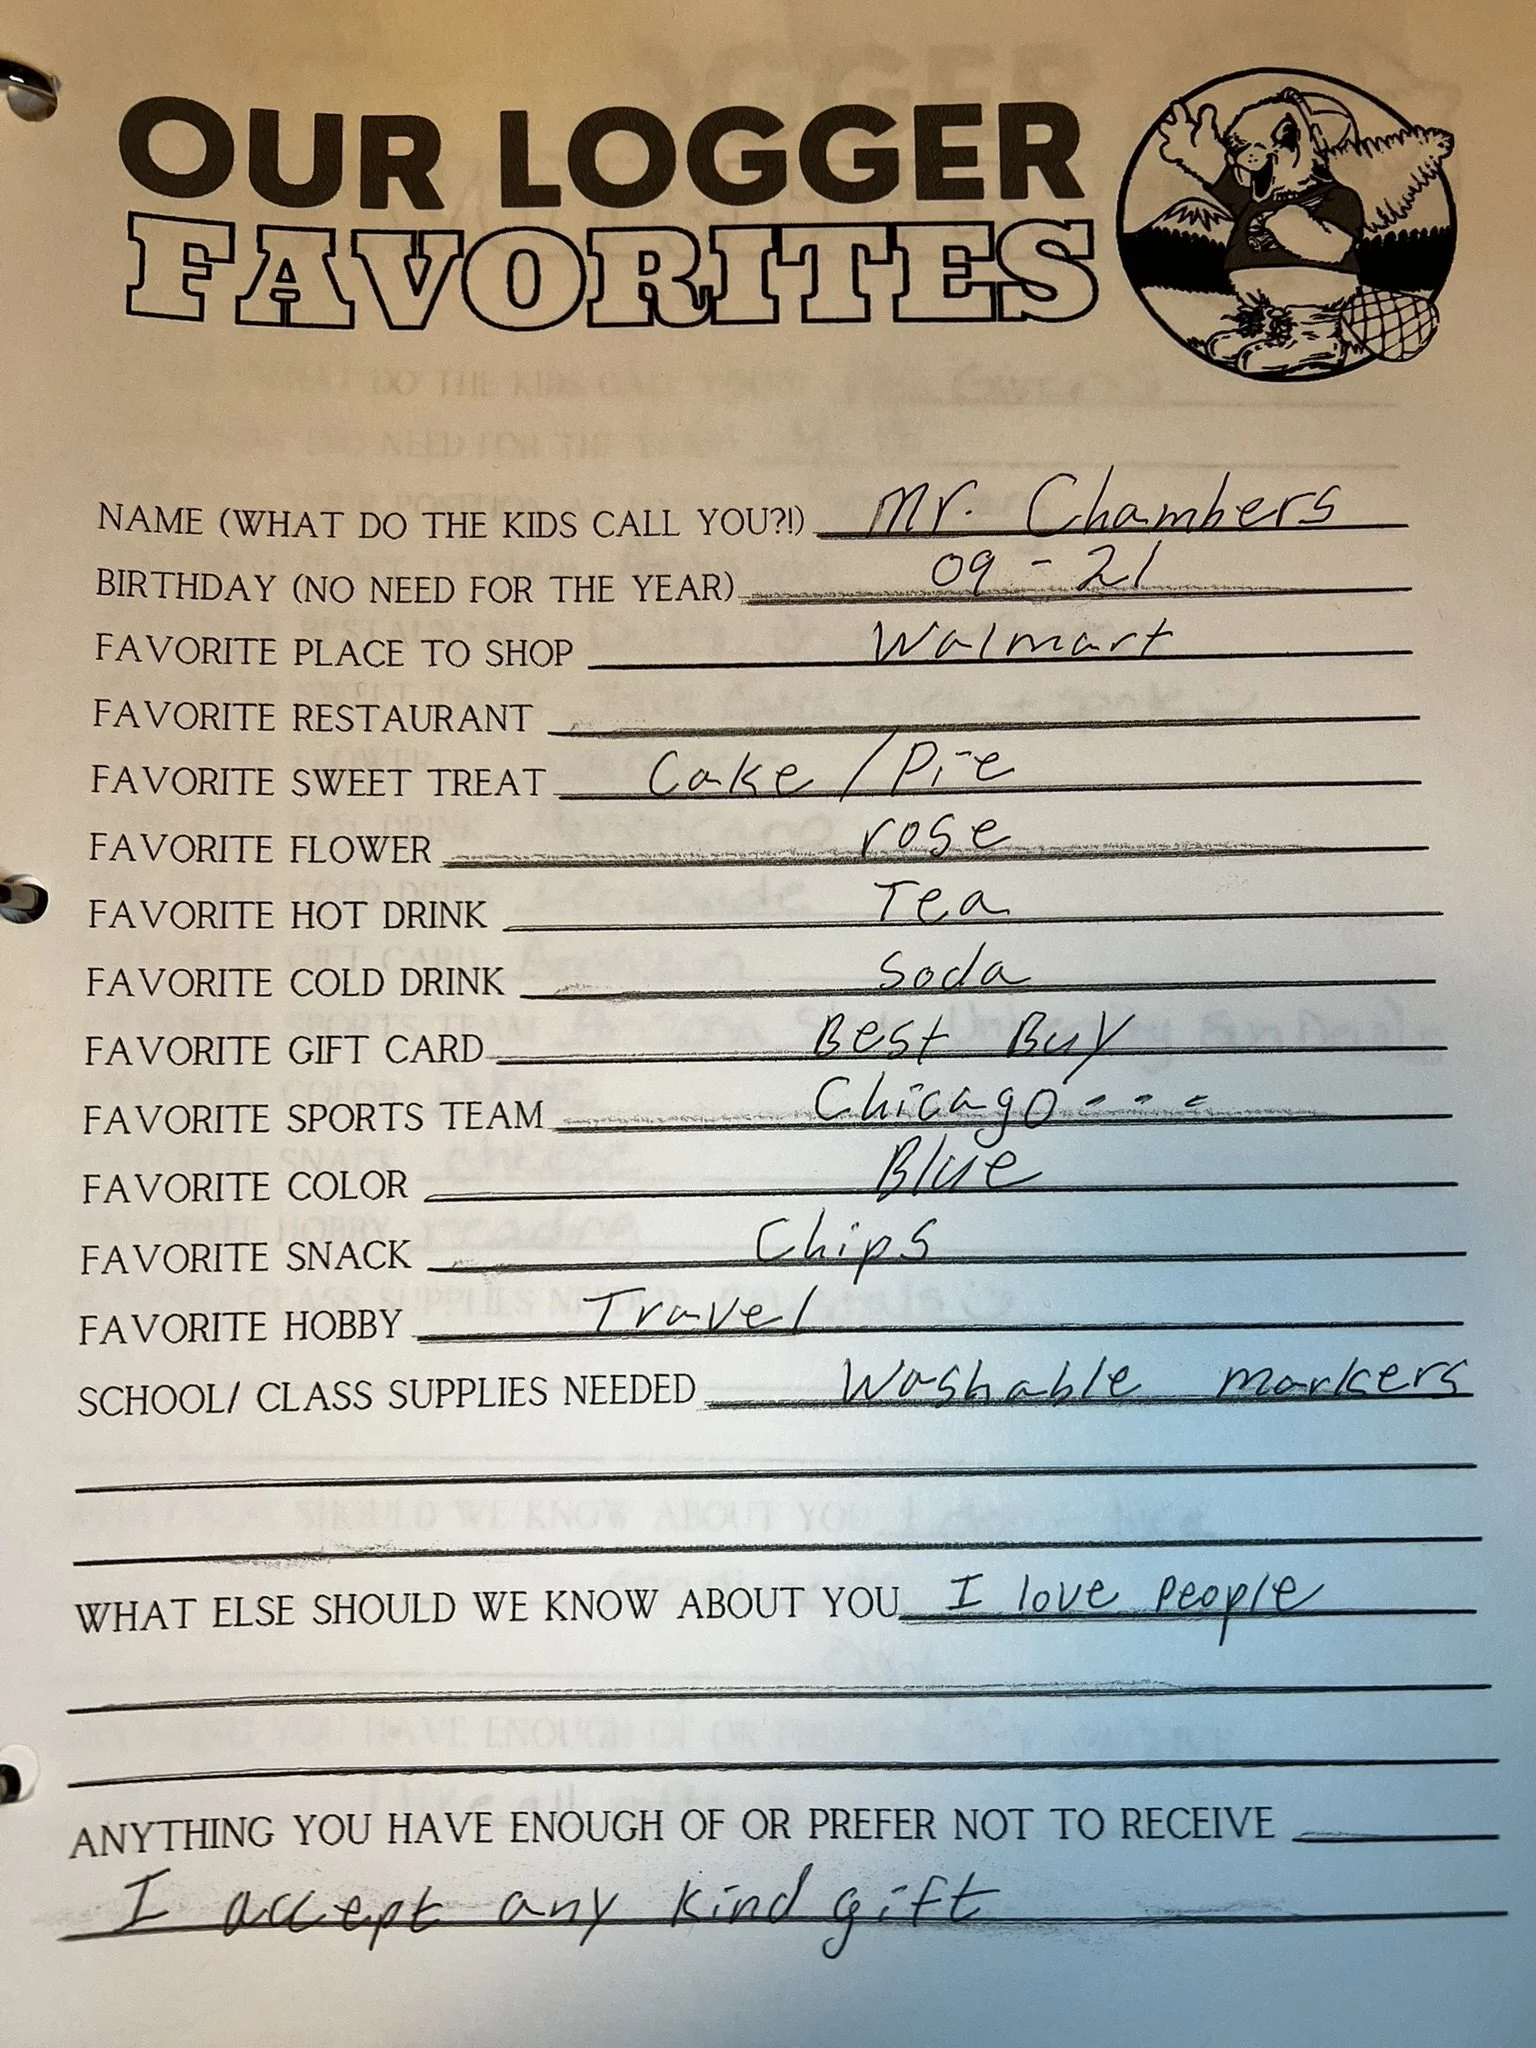 OUR LOGGER
FAVORITES
NAME (WHAT DO THE KIDS CALL YOU?!) Mr. Chambers
BIRTHDAY (NO NEED FOR THE YEAR) 09 - 21
FAVORITE PLACE TO SHOP Walmart
FAVORITE RESTAURANT
FAVORITE SWEET TREAT Cake / Pie
FAVORITE FLOWER rose
FAVORITE HOT DRINK Tea
FAVORITE COLD DRINK Soda
FAVORITE GIFT CARD Best Buy
FAVORITE SPORTS TEAM Chicago - - -
FAVORITE COLOR Blue
FAVORITE SNACK Chips
FAVORITE HOBBY Travel
SCHOOL/ CLASS SUPPLIES NEEDED Washable markers
WHAT ELSE SHOULD WE KNOW ABOUT YOU I love people
ANYTHING YOU HAVE ENOUGH OF OR PREFER NOT TO RECEIVE
I accept any kind gift